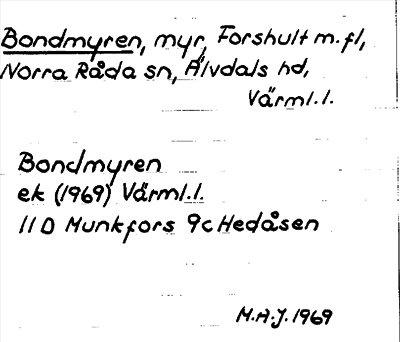 Bondmyren, myr, Forshult m.fl,
Norra Råda sn, Älvdals hd,
Värml.l.
Bondmyren
ek (1969) Värml.l.
11 D Munkfors 9c Hedåsen
M.A.J. 1969